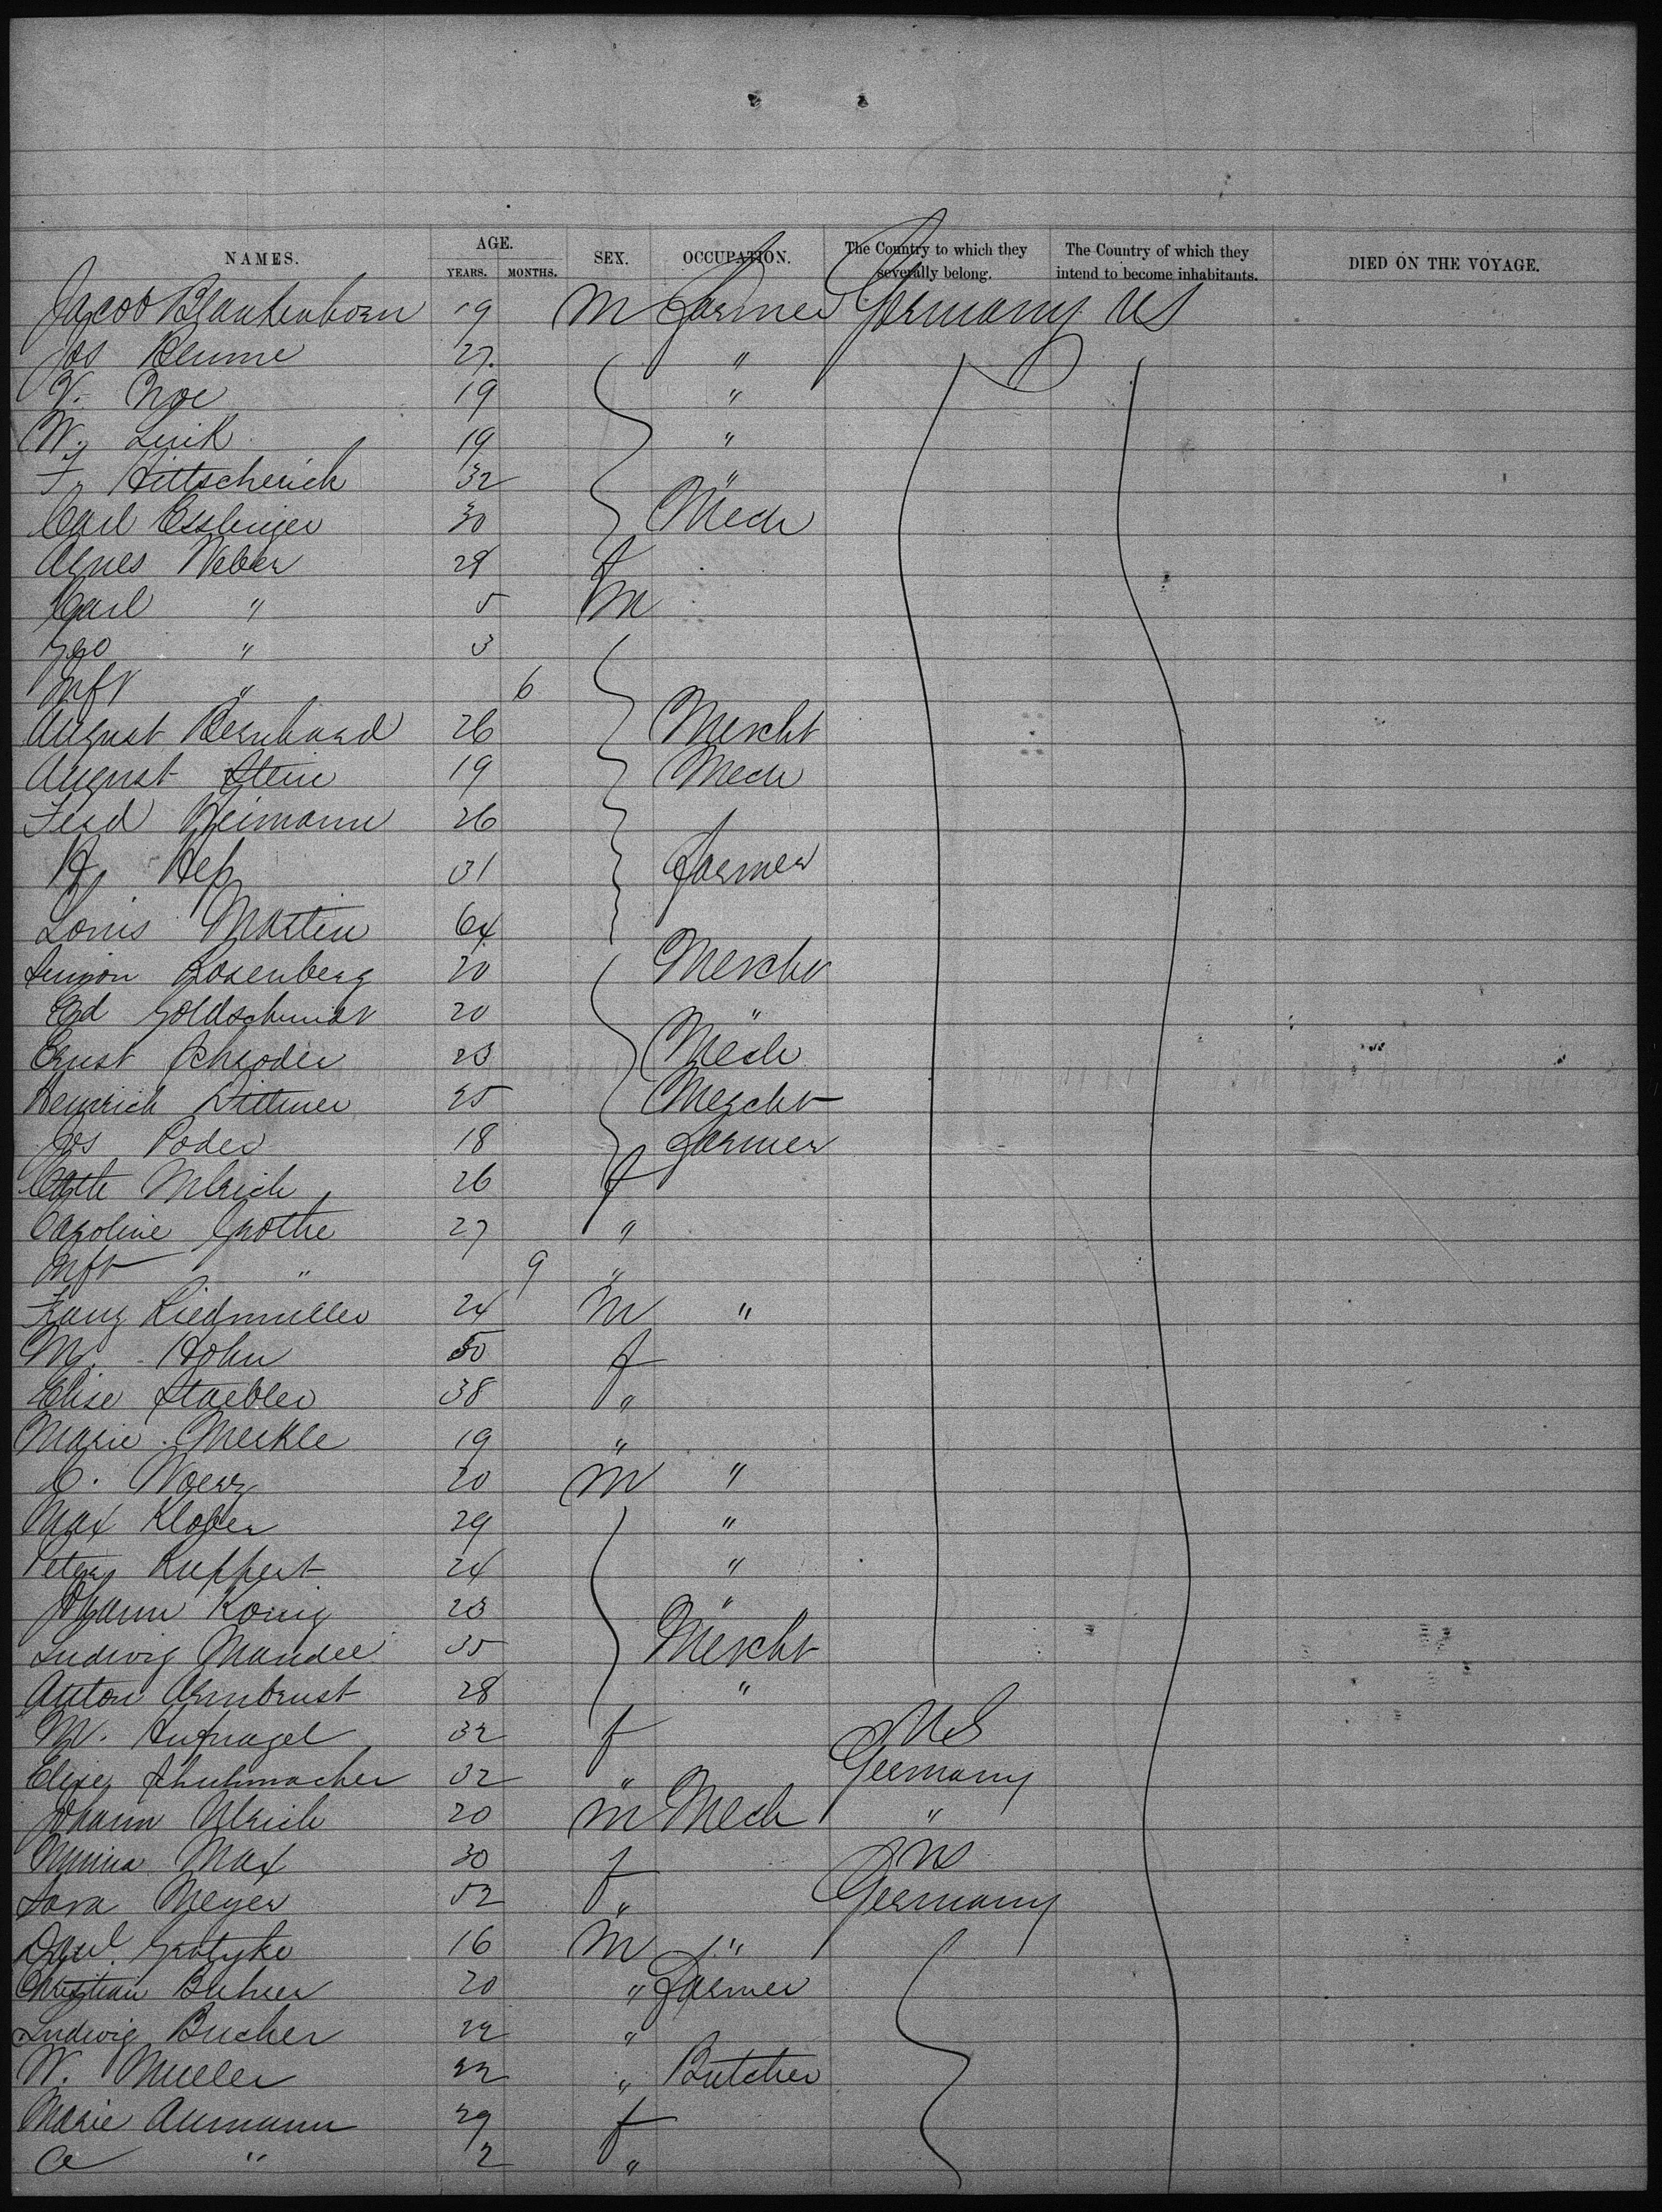 NAMES. AGE. SEX. OCCUPATION. The Country to which they severally belong. The Country of which they intend to become inhabitants. DIED ON THE VOYAGE.
YEARS. MONTHS.
Jacob Blankenhorn 19 M Farmer Germany US
Jos Blume 27 "
V. Noe 19 "
W. Link 19 "
F. 32 "
Carl Esslinger 30 Mech
Agnes Weber 29 f
Carl " 5 M
Geo " 3
Inft " 6
August Bernhard 26 Mercht
August Stein 19 Mech
Ferd Heimann 26
H. Hep 31 Farmer
Louis Martin 64
Simon Rosenberg 20 Mercht
Ed Goldschmidt 20 "
Ernst Schroder 23 Mech
Heinrich Dittmer 25 Mercht
Jos Poder 18 Farmer
Cath Ulrich 26 f
Caroline Grothe 27 "
Inft " 9 "
Franz Riedmuller 24 M "
M. Hohn 50 f
Elise Staebler 38 "
Marie Merkle 19 "
C. Woerz 20 M "
Max Klober 29 "
Peter Ruppert 24 "
Johann Konig 23 "
Ludwig Mandel 35 Mercht
Anton Armbrust 28 "
M. Hufnagel 32 f US
Elise Schuhmacher 32 " Germany
Johann Ulrich 20 M Mech "
Minna Max 30 f US
Sara Meyer 52 " Germany
16 M "
Christian 20 " Farmer
Ludwig Bucher 22 "
W. Mueller 22 " Butcher
Marie Aumann 29 f
A " 2 "